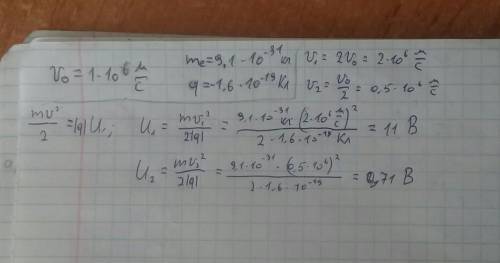 v₀ = 1·10⁶ м/с   mе = 9,1·10⁻³¹ кг   v₁ = 2v₀ = 2·10⁶ м/с
q = -1,6·10⁻¹⁹ Кл   v₂ = v₀/2 = 0,5·10⁶ м/с
mv²/2 = |q| U₁;   U₁ = mv₁²/2|q| = 9,1·10⁻³¹ кг (2·10⁶ м/с)²/2·1,6·10⁻¹⁹ Кл = 11 В
U₂ = mv₂²/2|q| = 9,1·10⁻³¹·(0,5·10⁶)²/2·1,6·10⁻¹⁹ = 0,71 В